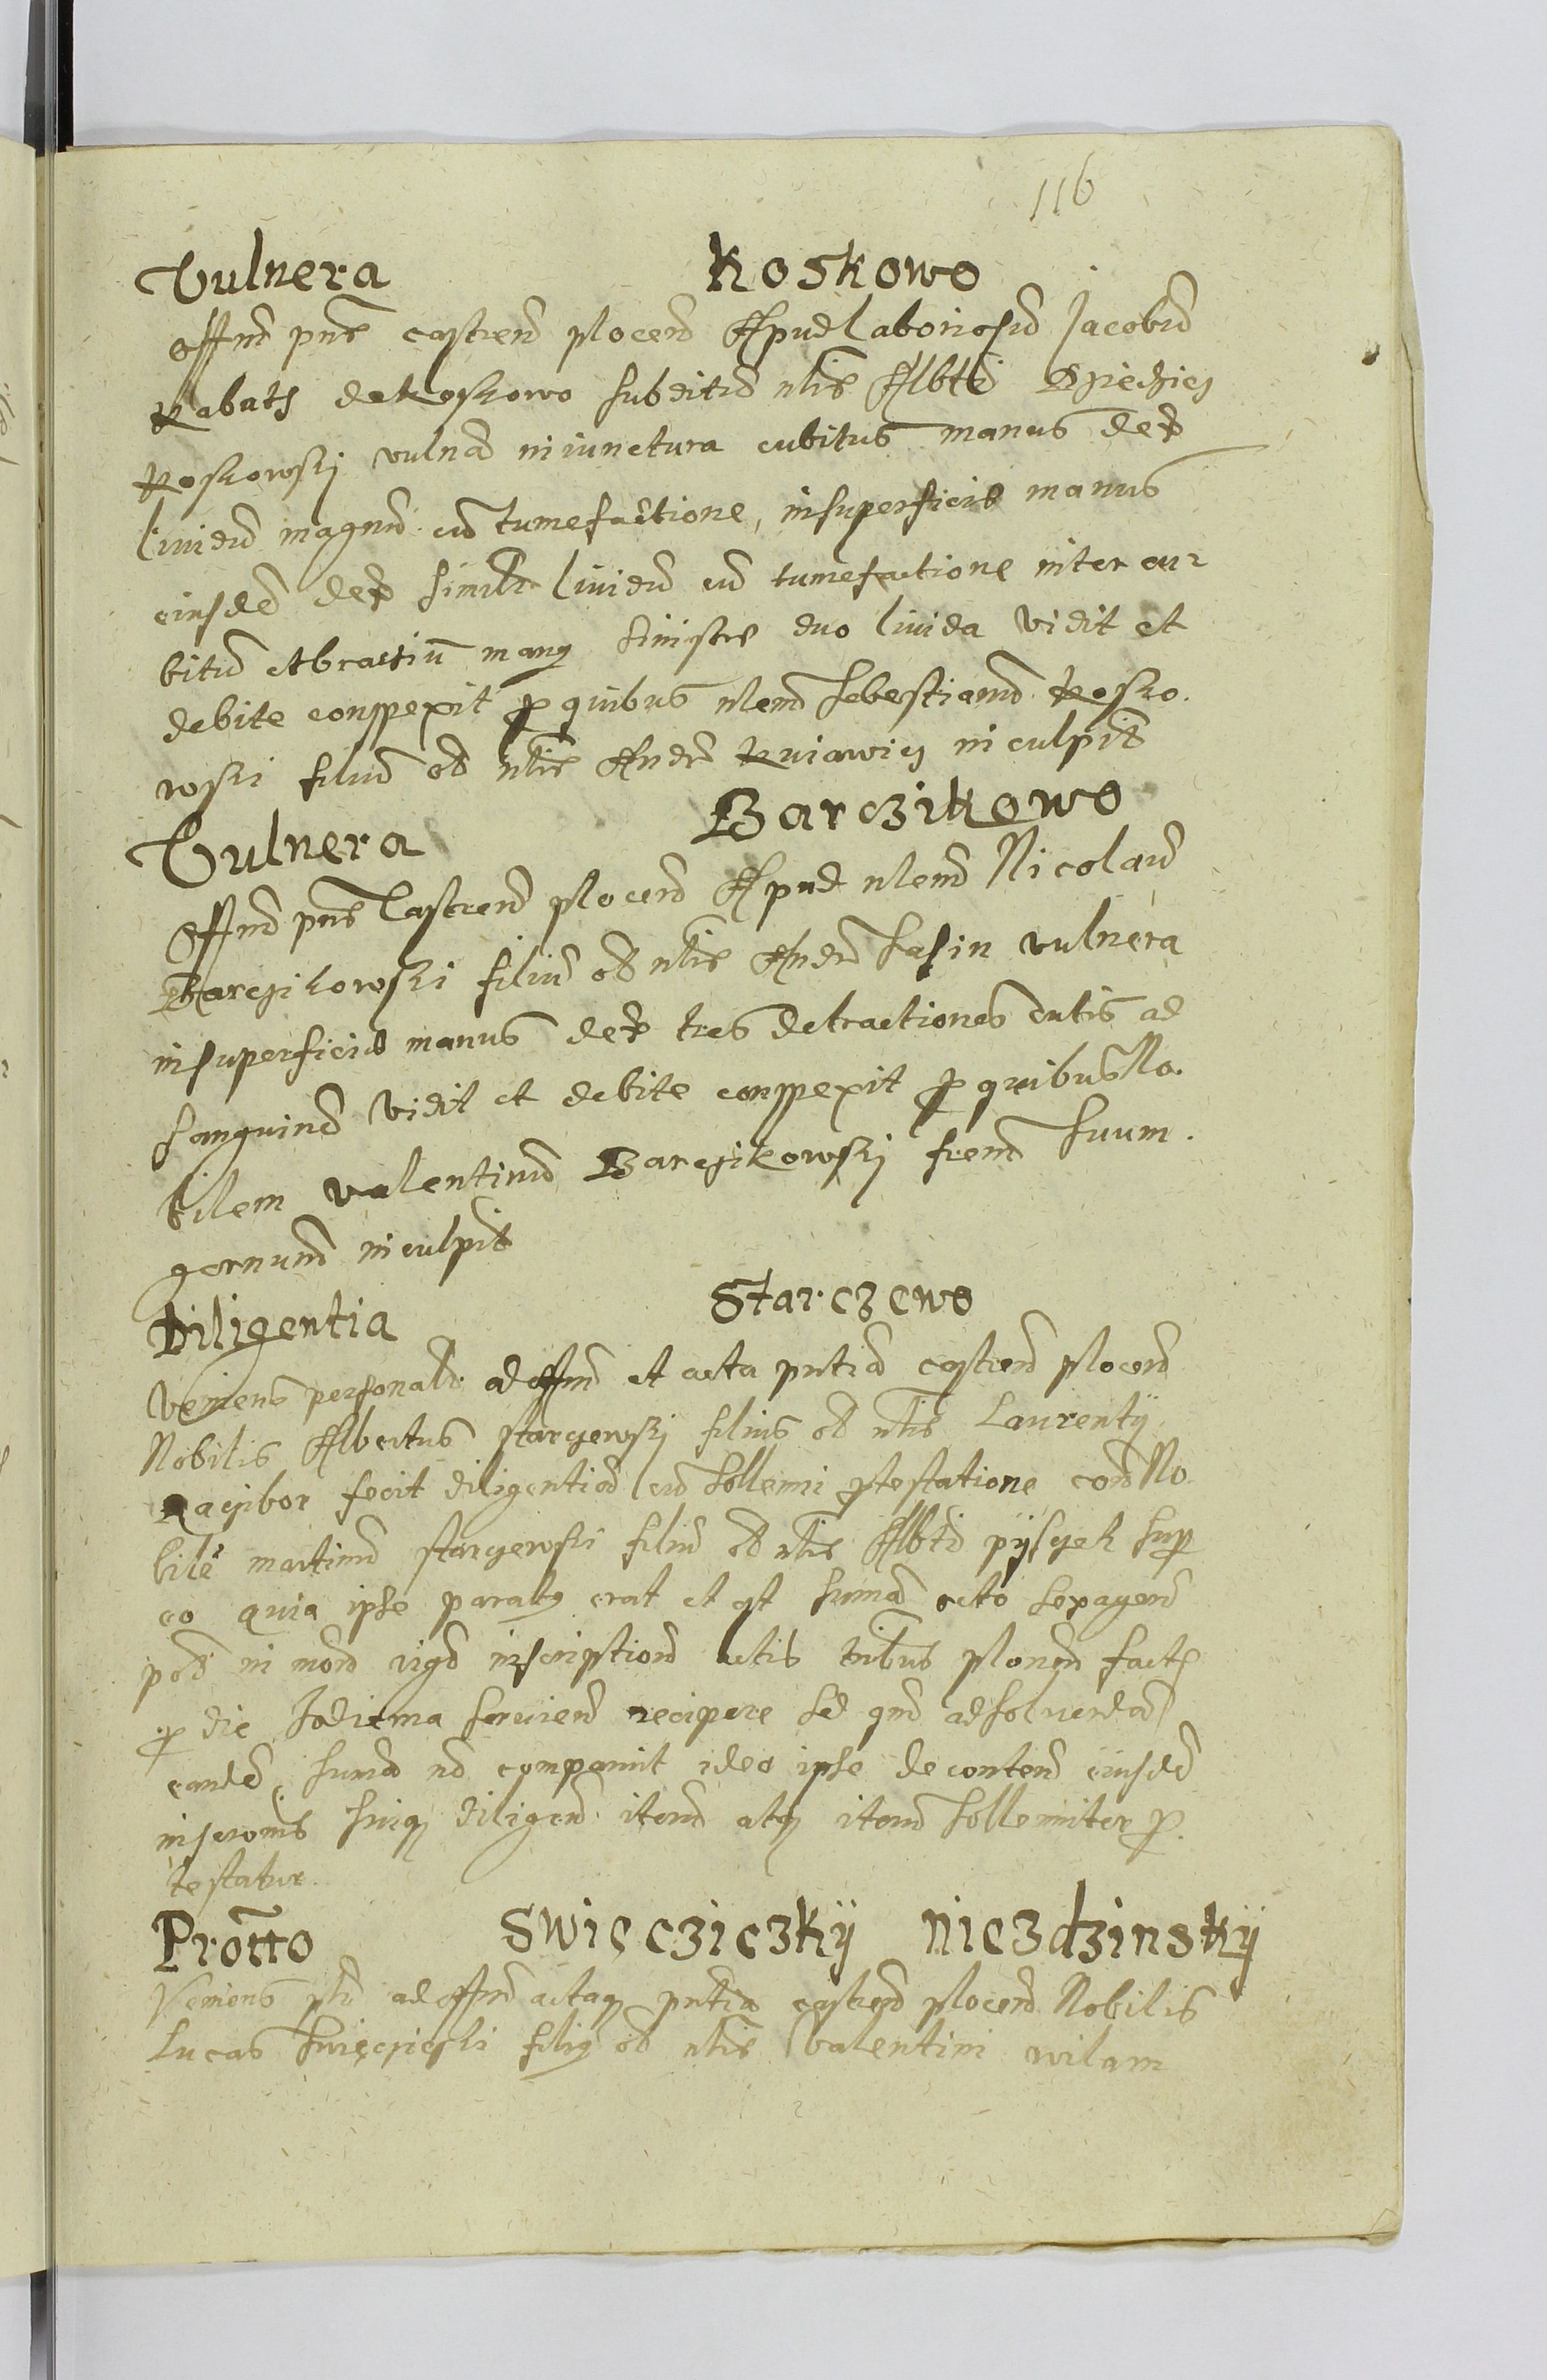 116
Vulnera Koskowo
Offm pns castren plocen Apud laboriosu Jacobu
Kabath de Koskowo subditu nlis Albti
Koskowskj vulna in iunctura cubitus manus dex
liuidu magnu cu tumefactione, in superficie manus
eiusde dex simile liuidu cu tumefactione inter cu
bitu et bracium manq sinistre duo liuida vidit et
debite conspexit p quibus nlem Sebestianu Kosko
wski filiu od nlis Andr Kuiawicz inculpat
Vulnera Barczikowo
Offm pns Castren plocen Apud nlem Nicolau
Barczikowski filiu od nlis Andr Sasin vulnera
in superficie manus dex tres detractiones cutis ad
sanguine vidit et debite conspexit p quibus No
bilem valentinu Barczikowskj frem suum
germanu inculpat
Diligentia Starczewo
Veniens personalr ad offm et acta pntia castren plocen
Nobilis Albertus starczewskj filius od nlis Laurentÿ
Raczibor fecit diligentia cu sollemni ptestatione con No
bile martinu starczewski filiu od nlis Albti pÿsczek sup
eo quia ipse paratq erat et est suma octo sexagen
pec in mon inscription actis plonen factq
p die hodierna seruien recipere sed qm ad soluenda
eande suma no comparuit ideo ipse de conten eiusde
inscronis suiq diligen iteru atq iteru sollemniter p
testatur
Protto Swięcziczkÿ Niczdzinskÿ
Veniens plr ad offm actaq pntia castren plocen Nobilis
Lucas Swięcziczki filiq od nlis valentini wilam